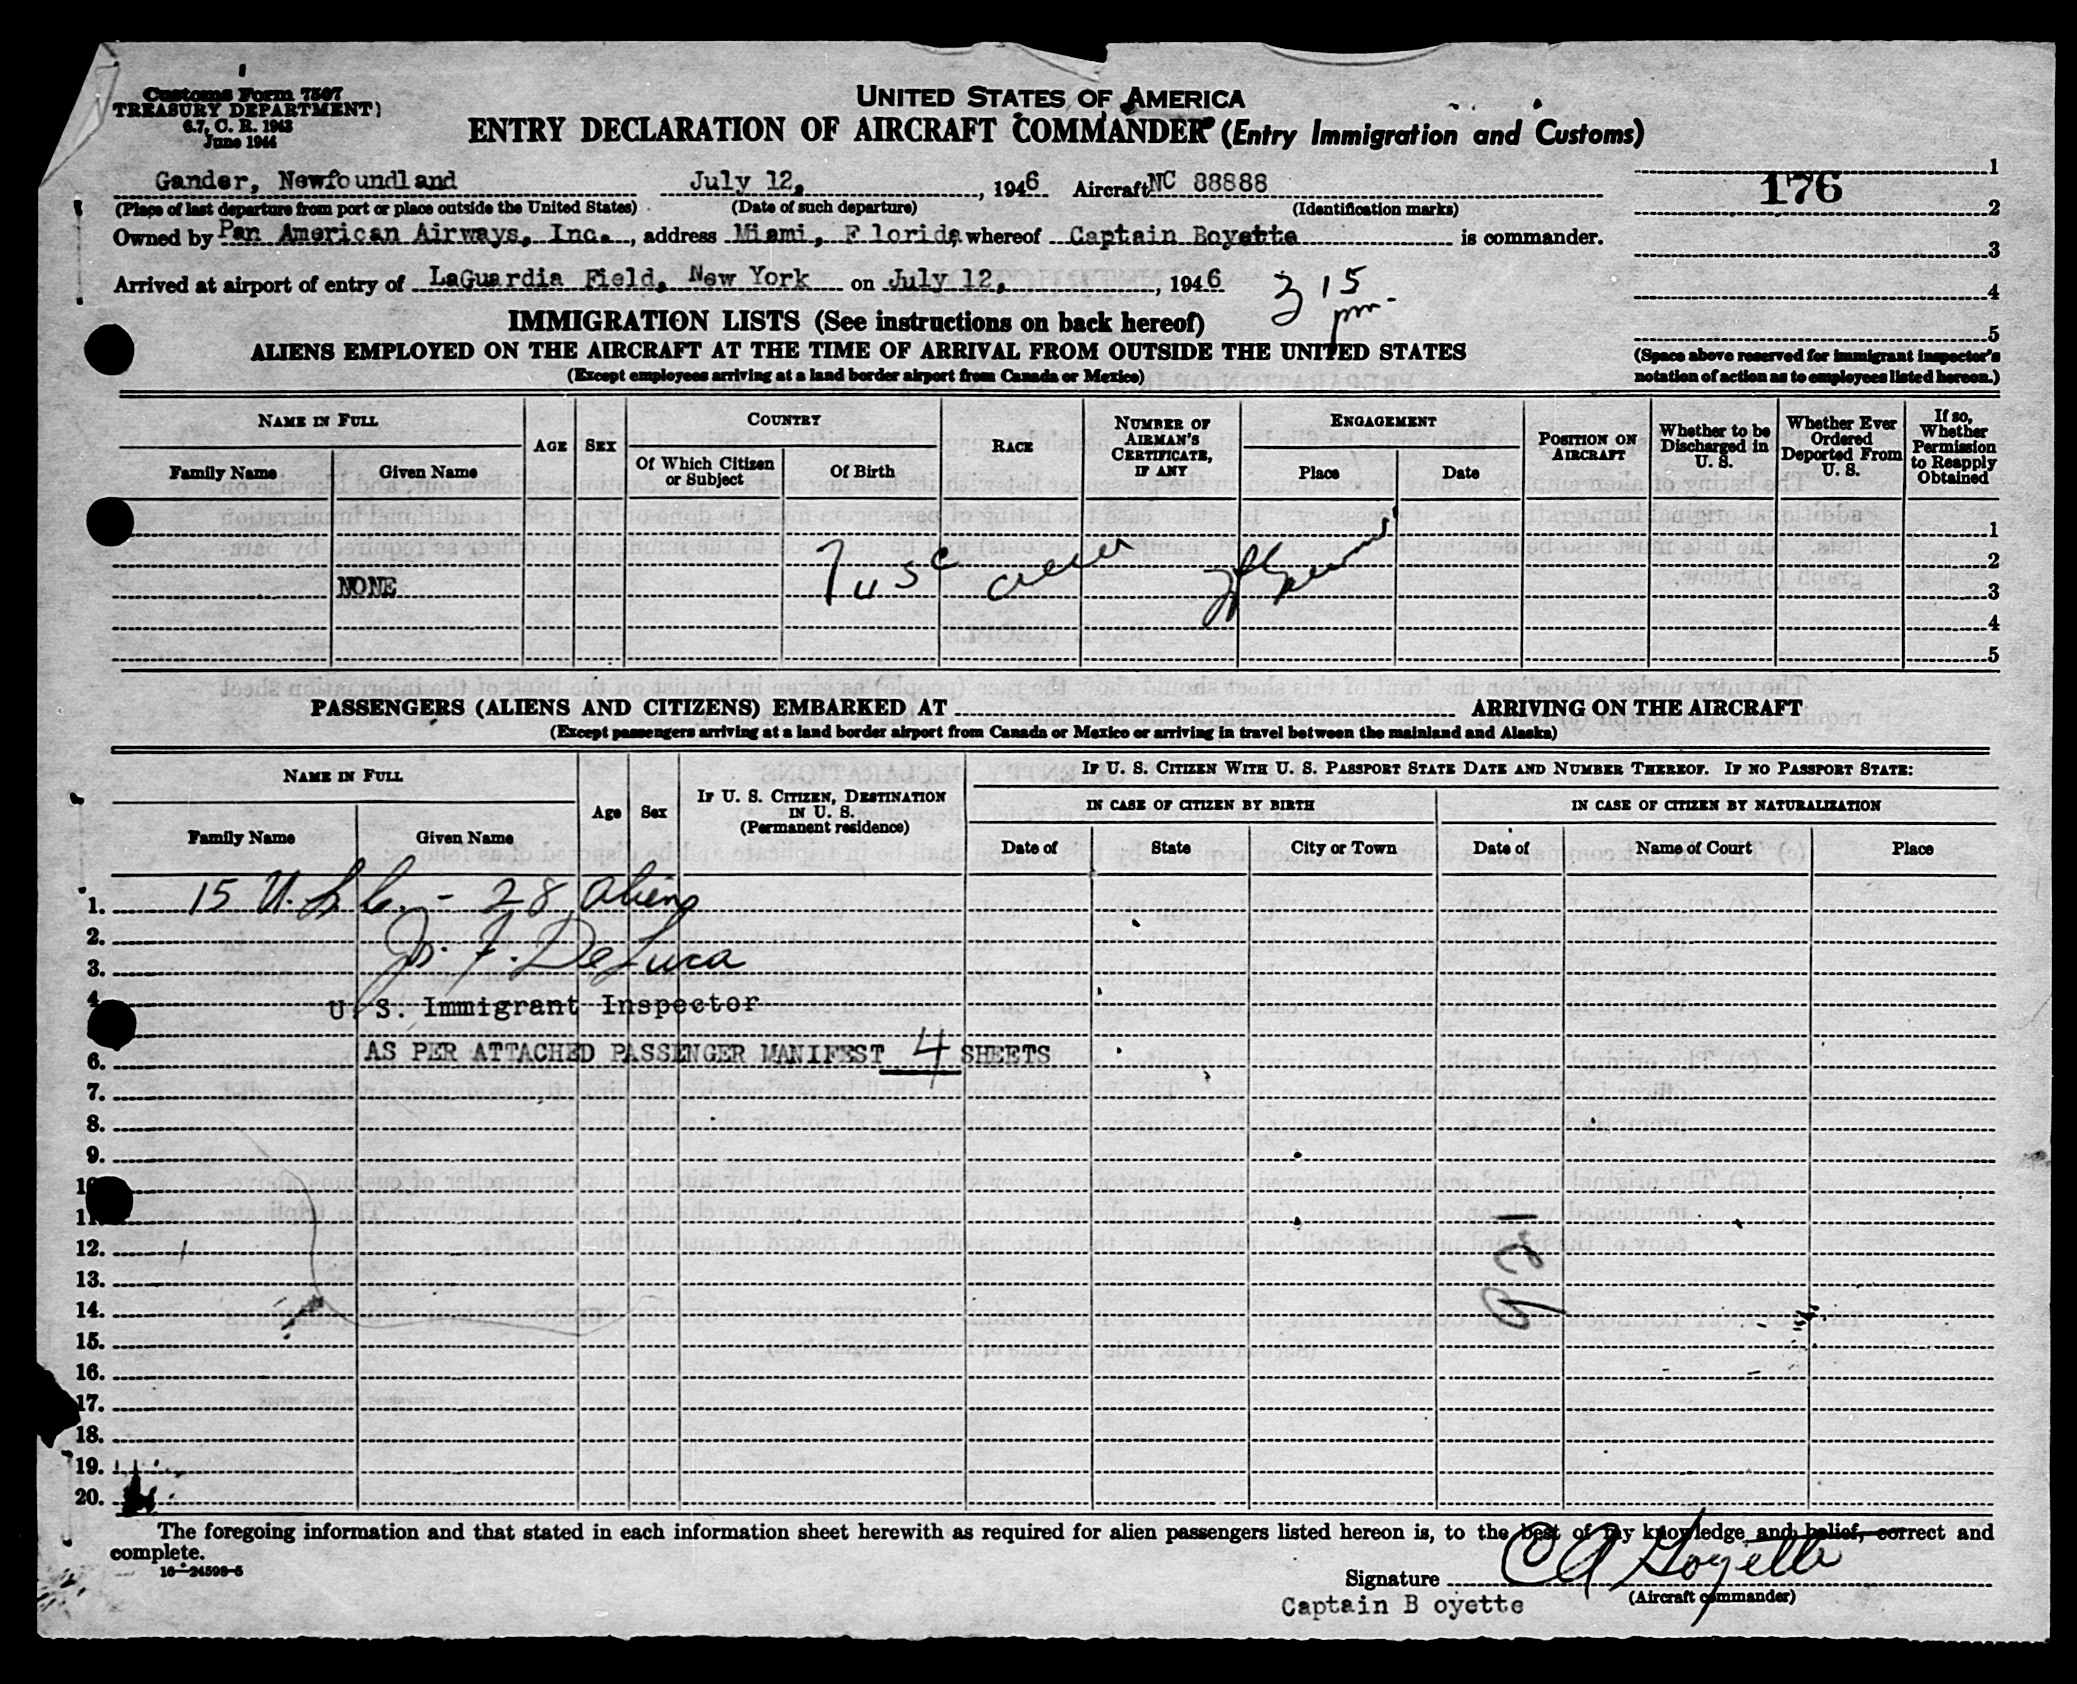 Customs Form 7507
TREASURY DEPARTMENT)
6.7, C. R. 1943
June 1944
UNITED STATES OF AMERICA
ENTRY DECLARATION OF AIRCRAFT COMMANDER (Entry Immigration and Customs)
Gander, Newfoundland July 12, , 1946 Aircraft NC 88888
(Place of last departure from port or place outside the United States) (Date of such departure) (Identification marks)
Owned by Pan American Airways, Inc. , address Miami, F lorida whereof Captain Boyette is commander.
Arrived at airport of entry of LaGuardia Field, New York on July 12, , 1946
3 15
pm.
176
1
2
3
4
5
(Space above reserved for immigrant inspector's
notation of action as to employees listed hereon.)
IMMIGRATION LISTS (See instructions on back hereof)
ALIENS EMPLOYED ON THE AIRCRAFT AT THE TIME OF ARRIVAL FROM OUTSIDE THE UNITED STATES
(Except employees arriving at a land border airport from Canada or Mexico)
NAME IN FULL
Family Name Given Name
AGE SEX
COUNTRY
Of Which Citizen or Subject Of Birth
RACE
NUMBER OF AIRMAN'S CERTIFICATE, IF ANY
ENGAGEMENT
Place Date
POSITION ON AIRCRAFT
Whether to be Discharged in U. S.
Whether Ever Ordered Deported From U. S.
If so, Whether Permission to Reapply Obtained
1
2
NONE 7 usc crew 3
4
5
PASSENGERS (ALIENS AND CITIZENS) EMBARKED AT ARRIVING ON THE AIRCRAFT
(Except passengers arriving at a land border airport from Canada or Mexico or arriving in travel between the mainland and Alaska)
NAME IN FULL
Family Name Given Name
Age Sex
IF U. S. CITIZEN, DESTINATION IN U. S.
(Permanent residence)
IF U. S. CITIZEN WITH U. S. PASSPORT STATE DATE AND NUMBER THEREOF. IF NO PASSPORT STATE:
IN CASE OF CITIZEN BY BIRTH IN CASE OF CITIZEN BY NATURALIZATION
Date of State City or Town Date of Name of Court Place
1. 15 U.S.C. - 28 aliens
2.
3. Jr. F. DeLuca
4. U. S. Immigrant Inspector
6. AS PER ATTACHED PASSENGER MANIFEST 4 SHEETS
7.
8.
9.
10
11.
12.
13.
14.
15.
16.
17.
18.
19.
20.
The foregoing information and that stated in each information sheet herewith as required for alien passengers listed hereon is, to the best of my knowledge and belief, correct and
complete.
16—24598-5
Signature CA Boyette
(Aircraft commander)
Captain B oyette